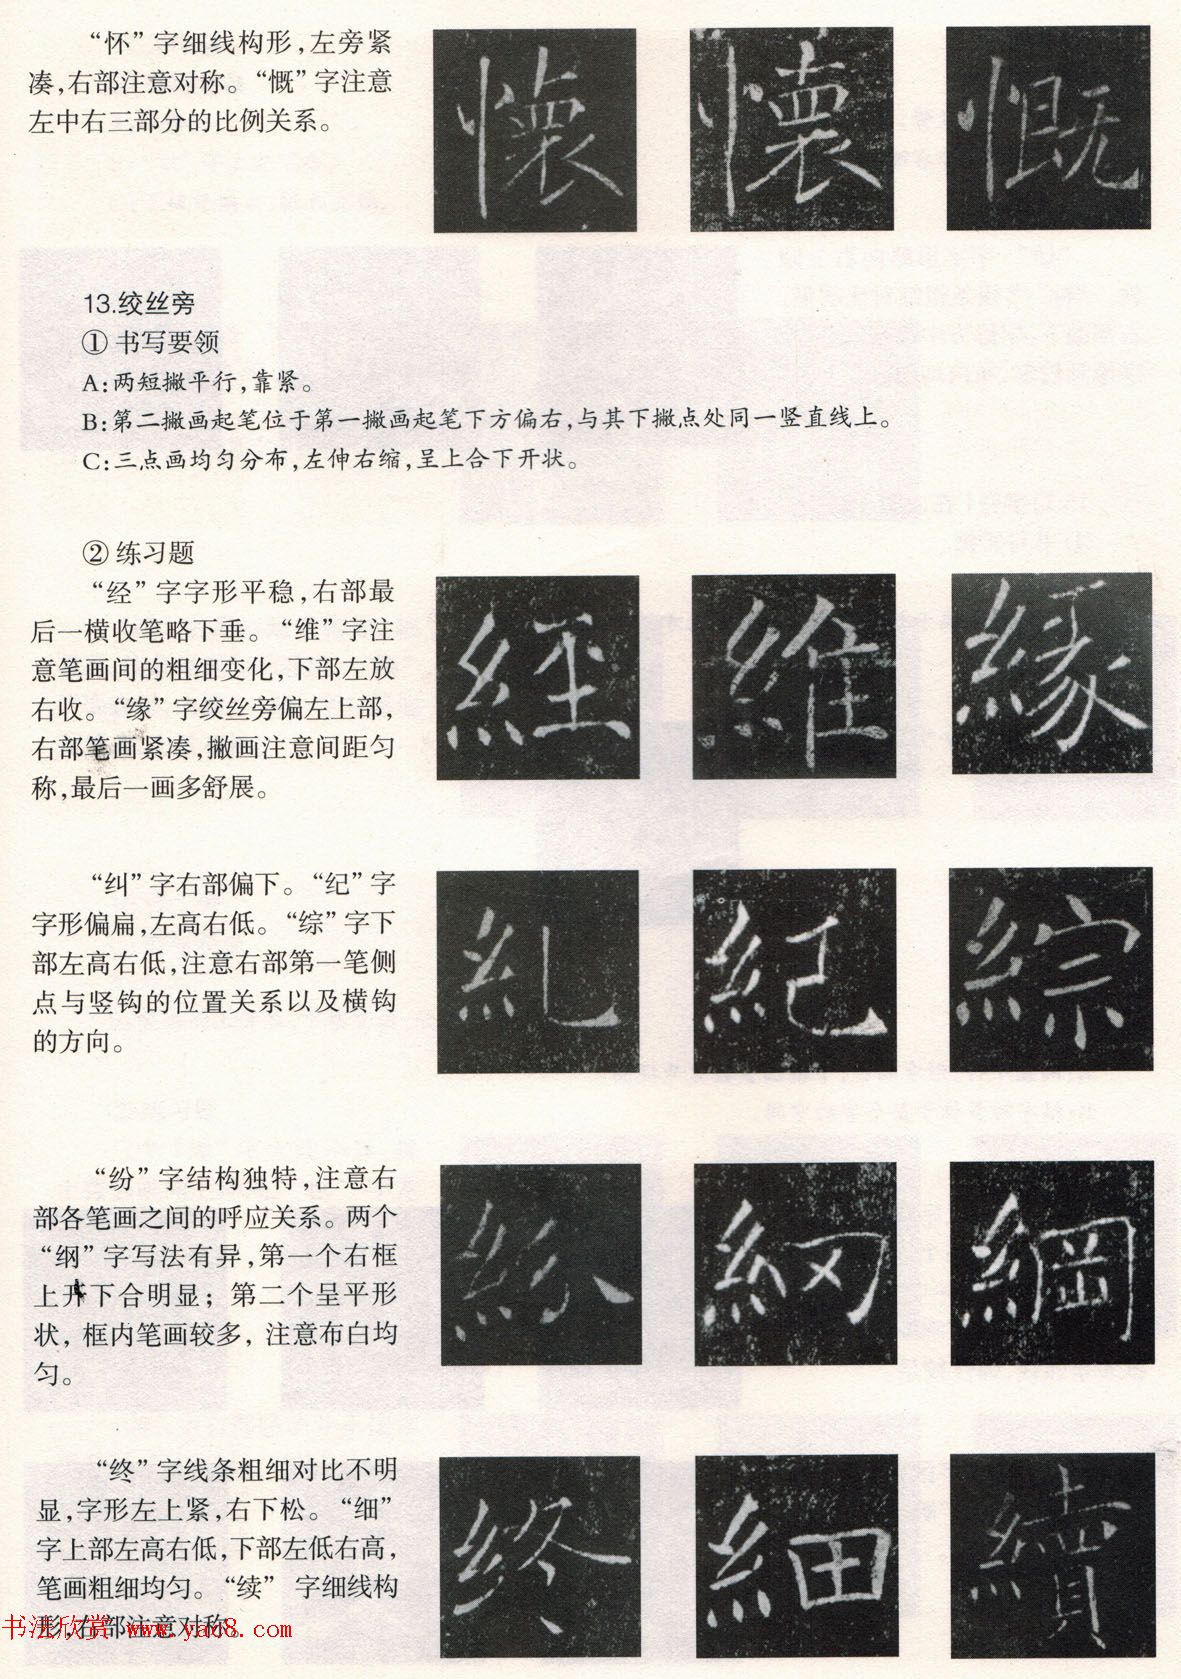 “怀”字细线构形,左旁紧
凑,右部注意对称。“慨”字注意
左中右三部分的比例关系。
懷 懷 慨
13.绞丝旁
① 书写要领
A:两短撇平行,靠紧。
B:第二撇画起笔位于第一撇画起笔下方偏右,与其下撇点处同一竖直线上。
C:三点画均匀分布,左伸右缩,呈上合下开状。
② 练习题
“经”字字形平稳,右部最
后一横收笔略下垂。“维”字注
意笔画间的粗细变化,下部左放
右收。“缘”字绞丝旁偏左上部,
右部笔画紧凑,撇画注意间距匀
称,最后一画多舒展。
經 維 緣
“纠”字右部偏下。“纪”字
字形偏扁,左高右低。“综”字下
部左高右低,注意右部第一笔侧
点与竖钩的位置关系以及横钩
的方向。
糺 紀 綜
“纷”字结构独特,注意右
部各笔画之间的呼应关系。两个
“纲”字写法有异,第一个右框
上开下合明显；第二个呈平形
状,框内笔画较多,注意布白均
匀。
綱
“终”字线条粗细对比不明
显,字形左上紧,右下松。“细”
字上部左高右低,下部左低右高,
笔画粗细均匀。“续”字细线构
形,右部注意对称。
終 細 續
书法欣赏 www.yac8.com